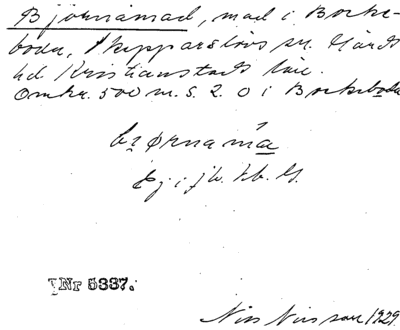 Björnamad, mad i Boke-
boda, Skepparslövs sn. Gärds
hd Kristianstads län.
Omkr. 500 m. S. 2. O i Bokeboda
Ej i jb.
Nr 5337.
Nils Nilsson 1929